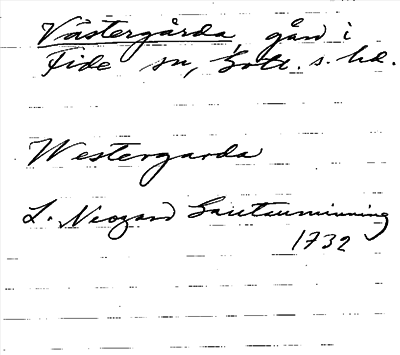 Västergårda, gån i
Fide sn, Gotl. s. hd.
Westergarda
L. Neogard Gautauminning
1732